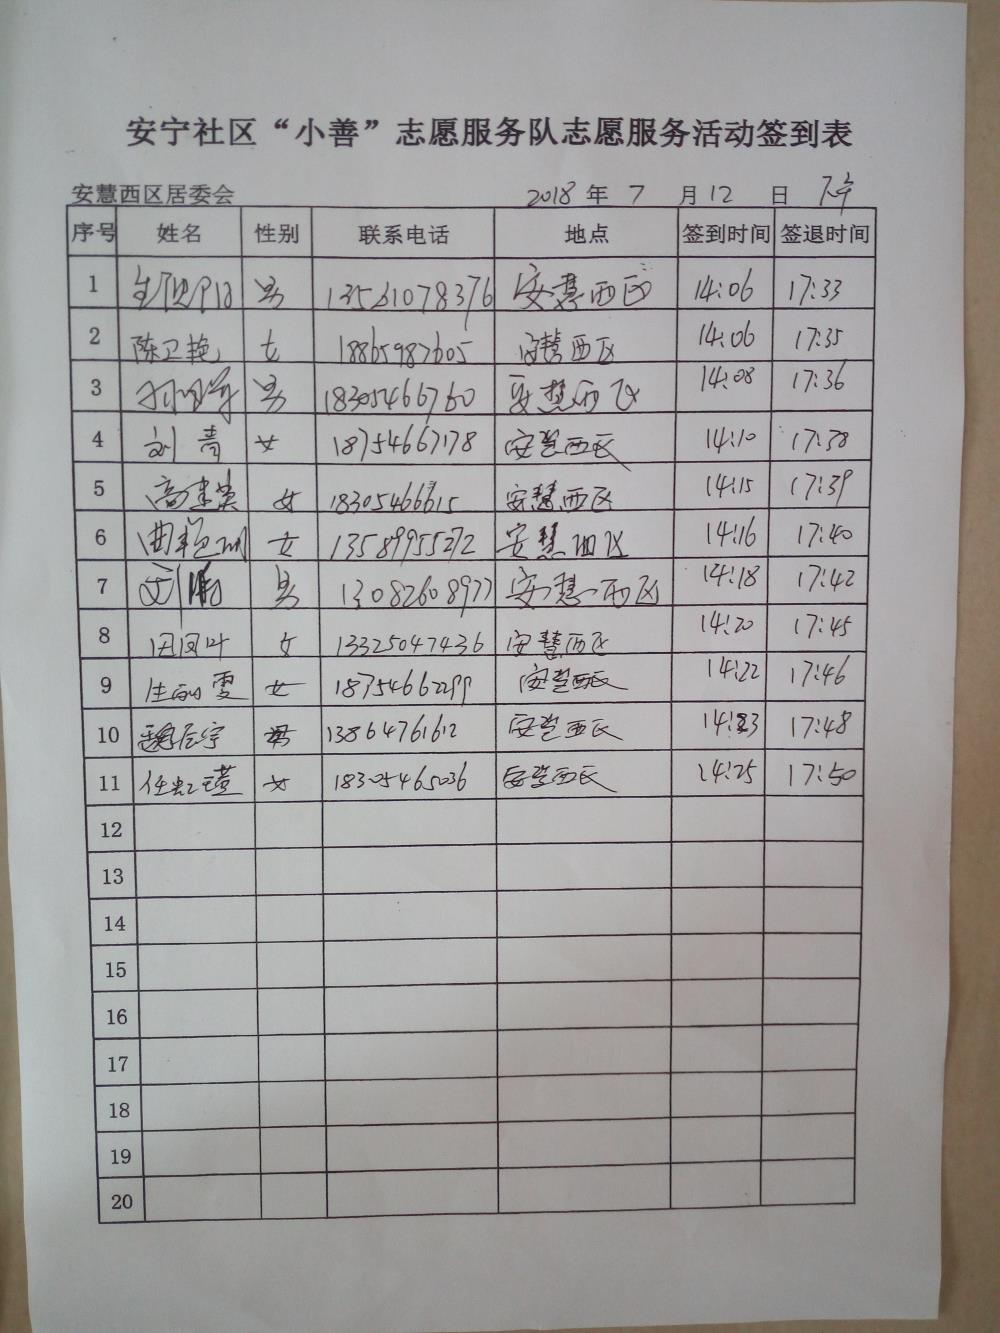 安宁社区“小善”志愿服务队志愿服务活动签到表
安慧西区居委会 2018 年 7 月 12 日 下午
序号 姓名 性别 联系电话 地点 签到时间 签退时间
1 男 13561078376 安慧西区 14:06 17:33
2 陈卫艳 女 18865987605 安慧西区 14:06 17:35
3 男 18305466760 安慧西区 14:08 17:36
4 刘青 女 18754667178 安慧西区 14:10 17:38
5 高建英 女 18305466615 安慧西区 14:15 17:39
6 曲艳丽 女 13589955272 安慧西区 14:16 17:40
7 刘 男 13082608977 安慧西区 14:18 17:42
8 田凤叶 女 13325047436 安慧西区 14:20 17:45
9 生丽雯 女 18754662299 安慧西区 14:22 17:46
10 魏辰宇 男 13864761612 安慧西区 14:23 17:48
11 任虹瑾 女 18305465036 安慧西区 14:25 17:50
12
13
14
15
16
17
18
19
20